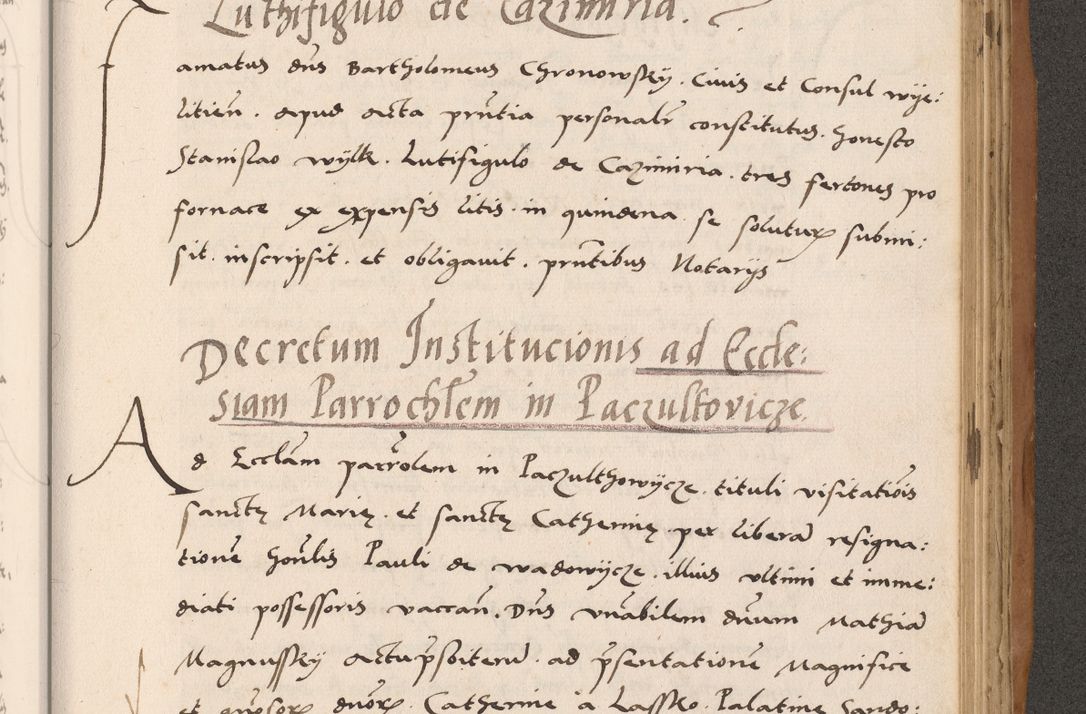 Luthifigulo de Cazimiria.
Famatus dns Bartholomeus Chronowsky. Civis et Consul wye:
liticn. apud acta pntia personalr constitutus. honesto
Stanislao wylk. Lutifigulo de Cazimiria. tres fertones pro
fornace ex expensis litis in quindena se soluturum submi:
sit. inscripsit. et obligavit. pntibus Notarijs
Decretum Institucionis ad Eccle:
siam Parrochlem in Paczultovicze.
Ad Ecclam parrolem in Paczulthowycze. tituli visitatiois
sanctę Marię. et sanctę Catherinę. per libera resigna:
tione honlis Pauli de wadowycze. illius ultimi et imme:
diati possessoris vaccan. Dns vnabilem dnum Mathia
Magnussky actu psbiterum. ad psentatione Magnifice
et gnosorum dnorum Catherine à Lassko. Palatine Sando: